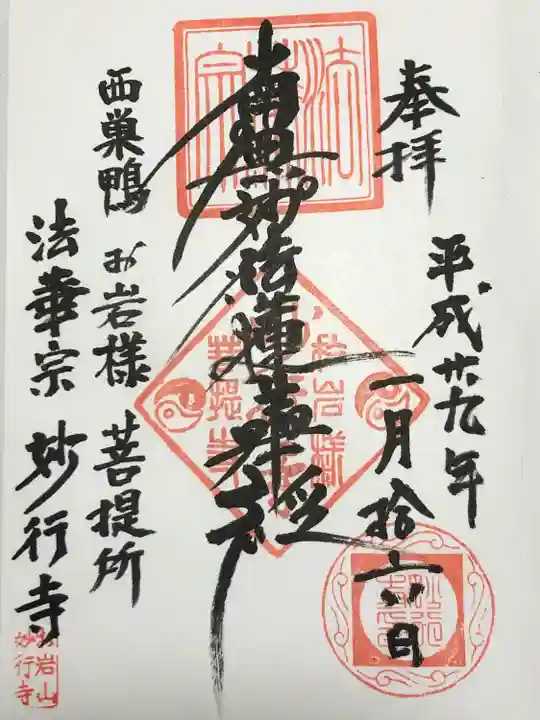 奉拝
平成廿九年
一月拾六日
南無妙法蓮華経
西巣鴨 お岩様 菩提所
法華宗 妙行寺
法華宗
お岩様
菩提寺
妙行寺